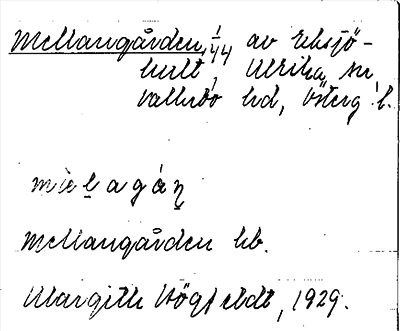 Mellangården, 1/44 av Eksjö-
hult, Ulrika sn,
Valkebo hd, Österg. l.
mèlagáṇ
Mellangården hb.
Margith Högfeldt, 1929.